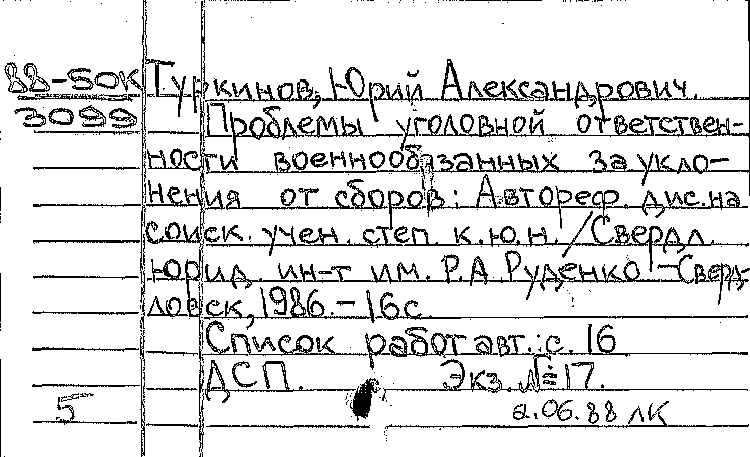 88-50К Туркинов, Юрий Александрович.
3099 Проблемы уголовной ответствен-
ности военнообязанных за укло-
нения от сборов: Автореф. дис. на
соиск. учен. степ. к.ю.н. /Свердл.
юрид. ин-т им. Р.А. Руденко.-Сверд-
ловск, 1986.-16 с.
Список работ авт.: с. 16
ДСП. Экз. №17.
5 2.06.88 ЛК